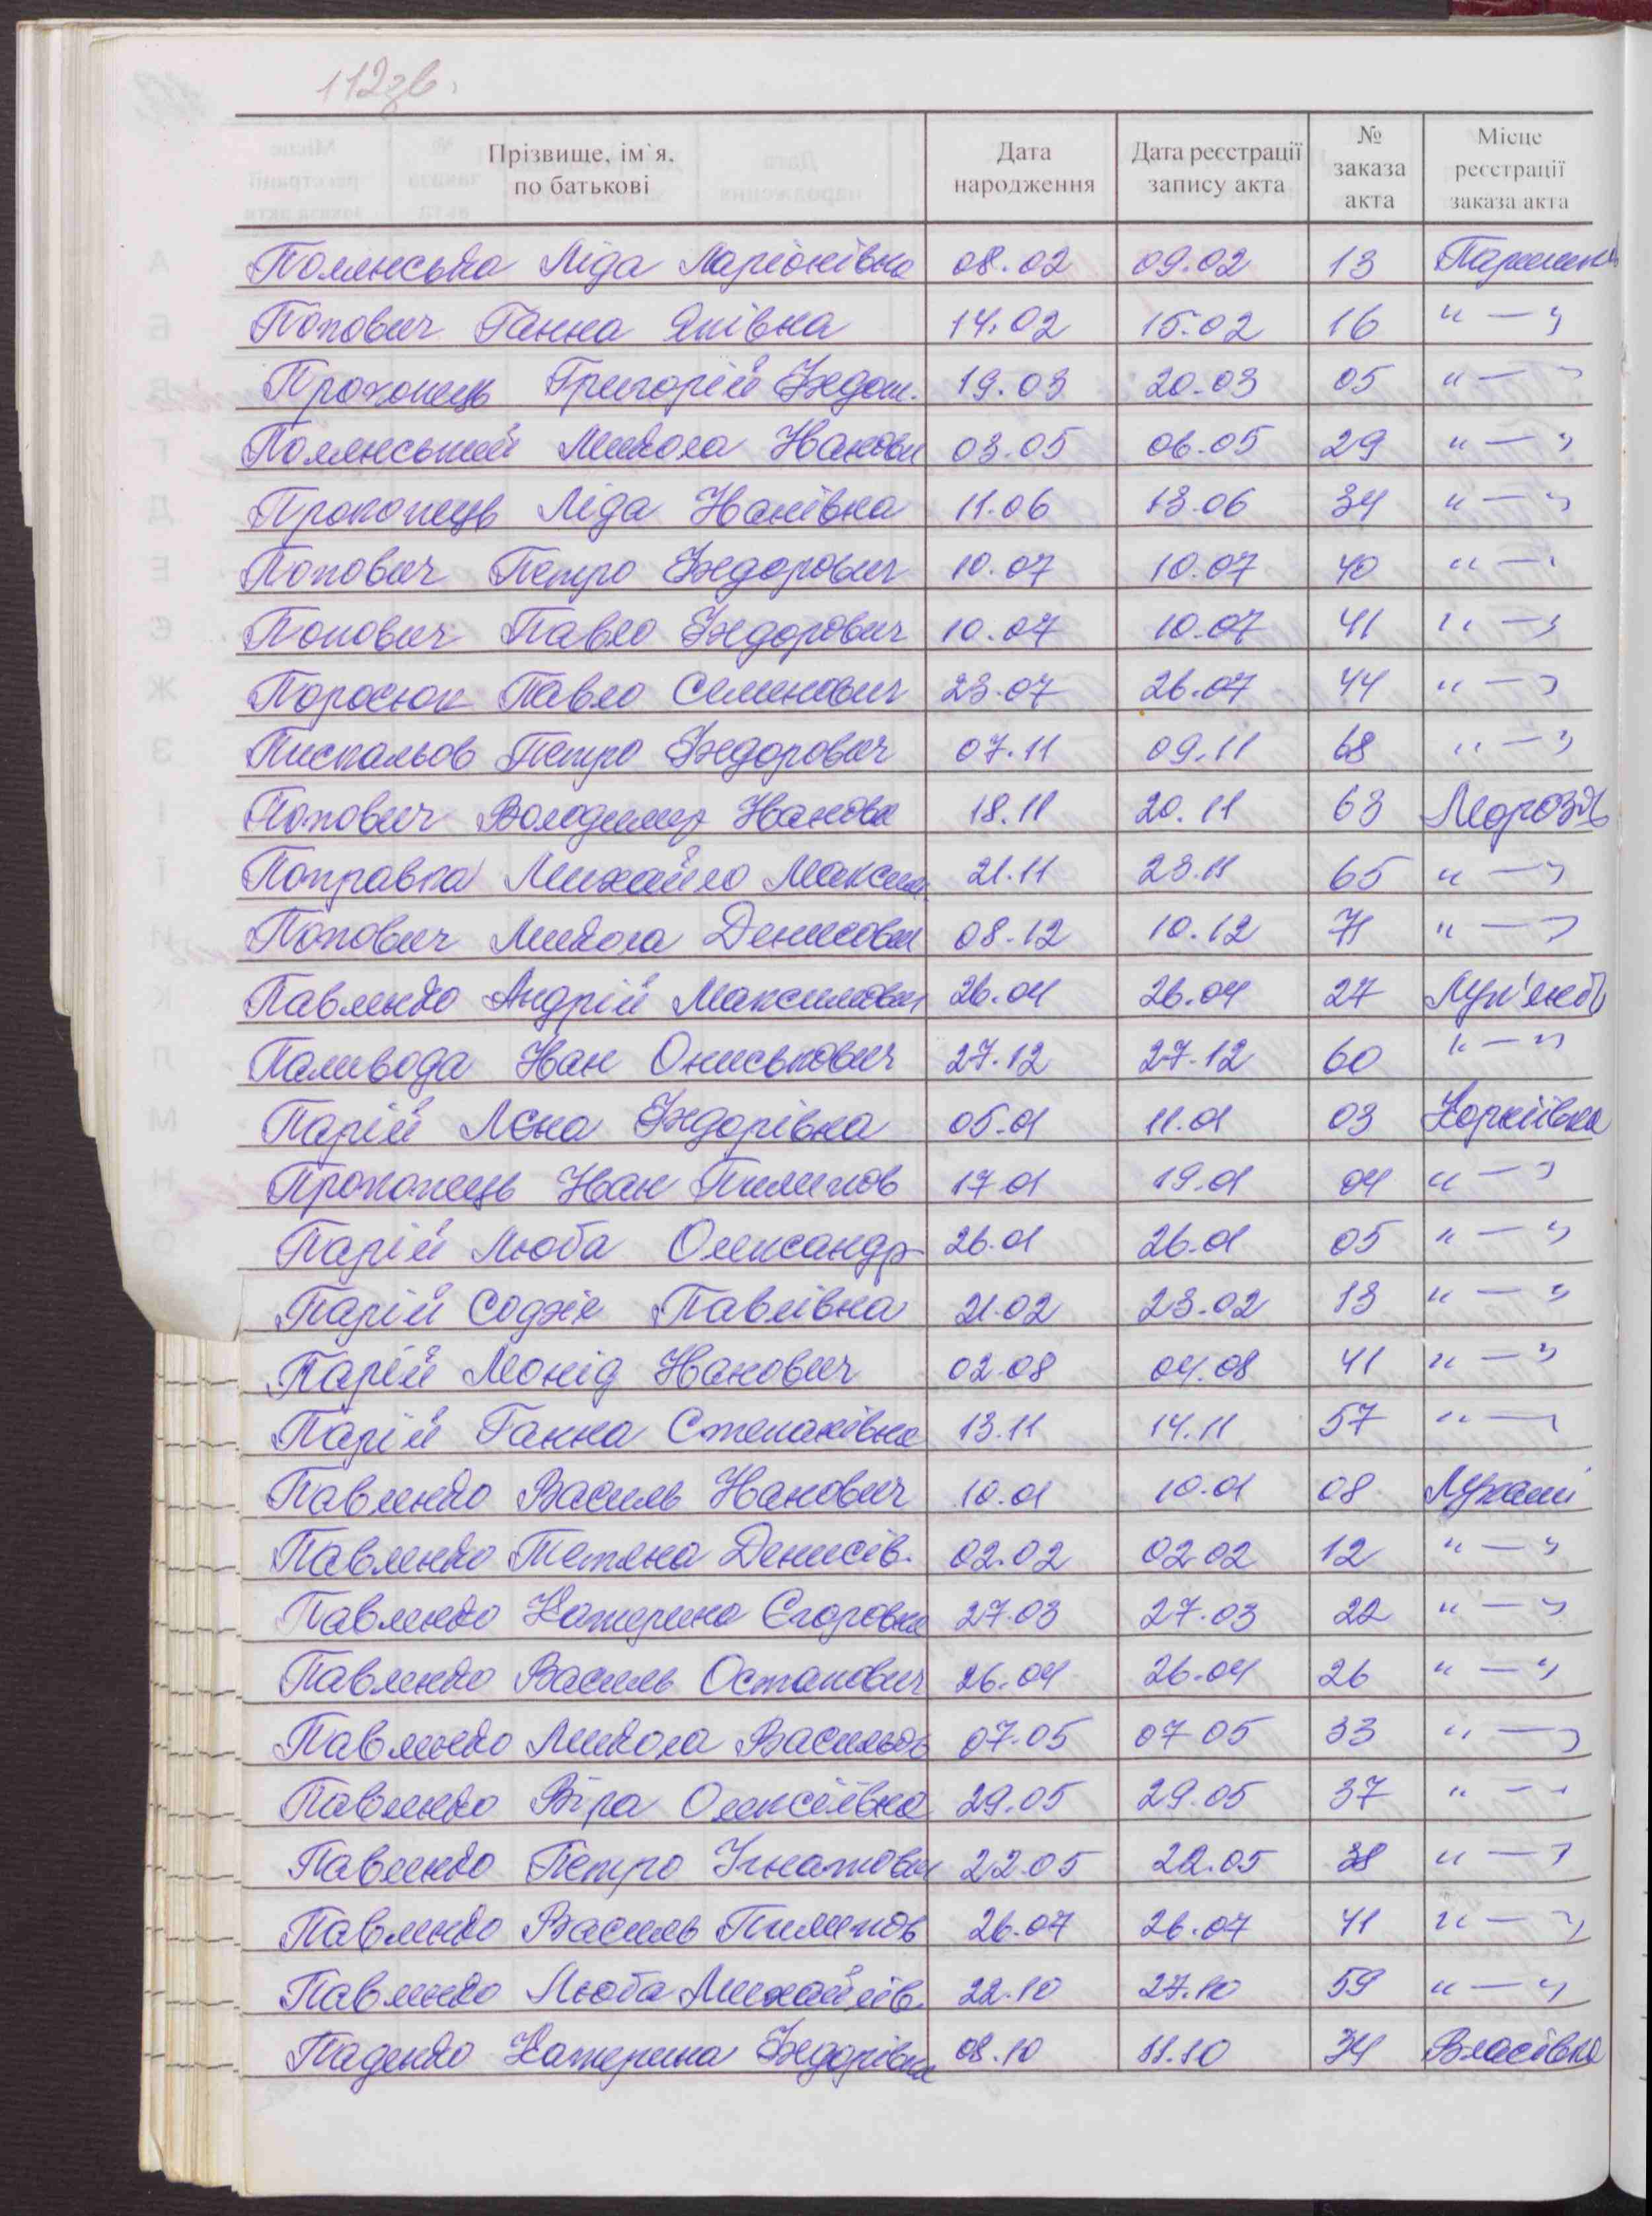 112зв.
Прізвище, ім`я, по батькові Дата народження Дата реєстрації запису акта № заказа акта Місце реєстрації заказа акта
Полянська Ліда Ларіонівна 08.02 09.02 13
Попович Ганна Яківна 14.02 15.02 16 " — "
Прокопець Григорій Федот. 19.03 20.03 05 " — "
Полянський Микола Іванови 03.05 06.05 29 " — "
Прокопець Ліда Іванівна 11.06 13.06 34 " — "
Попович Петро Федорович 10.07 10.07 40 " — "
Попович Павло Федорович 10.07 10.07 41 " — "
Поросюк Павло Семенович 23.07 26.07 44 " — "
Пискальов Петро Федорович 07.11 09.11 68 " — "
Попович Володимир Іванов 18.11 20.11 63 Морозів
Поправка Михайло Максим. 21.11 23.11 65 " — "
Попович Микола Денисови 08.12 10.12 71 " — "
Павленко Андрій Максимович 26.04 26.04 27 Лук'янів
Паливода ІванОниськович 27.12 27.12 60 " — "
Парій Лєна Федорівна 05.01 11.01 03 Корніївка
Прокопець Іван Пилипов 17.01 19.01 04 " — "
Парій Люба Олександр 26.01 26.01 05 " — "
Парій Софія Павлівна 21.02 23.02 13 " — "
Парій Леонід Іванович 02.08 04.08 41 " — "
Парій Ганна Степанівна 13.11 14.11 57 " — "
Павленко Василь Іванович 10.01 10.01 08 Лукаші
Павленко Тетяна Денисів. 02.02 02.02 12 " — "
Павленко Катерина Єгоровна 27.03 27.03 22 " — "
Павленко Василь Остапович 26.04 26.04 26 " — "
Павленко Микола Васильов 07.05 07.05 33 " — "
Павленко Віра Олексіївна 29.05 29.05 37 " — "
Павленко Петро Ігнатови 22.05 22.05 38 " — "
Павленко Василь Пилипов 26.07 26.07 41 " — "
Павленко Люба Михайлів. 22.10 27.10 59 " — "
Паденко Катерина Федорівна 08.10 11.10 34 Власівка